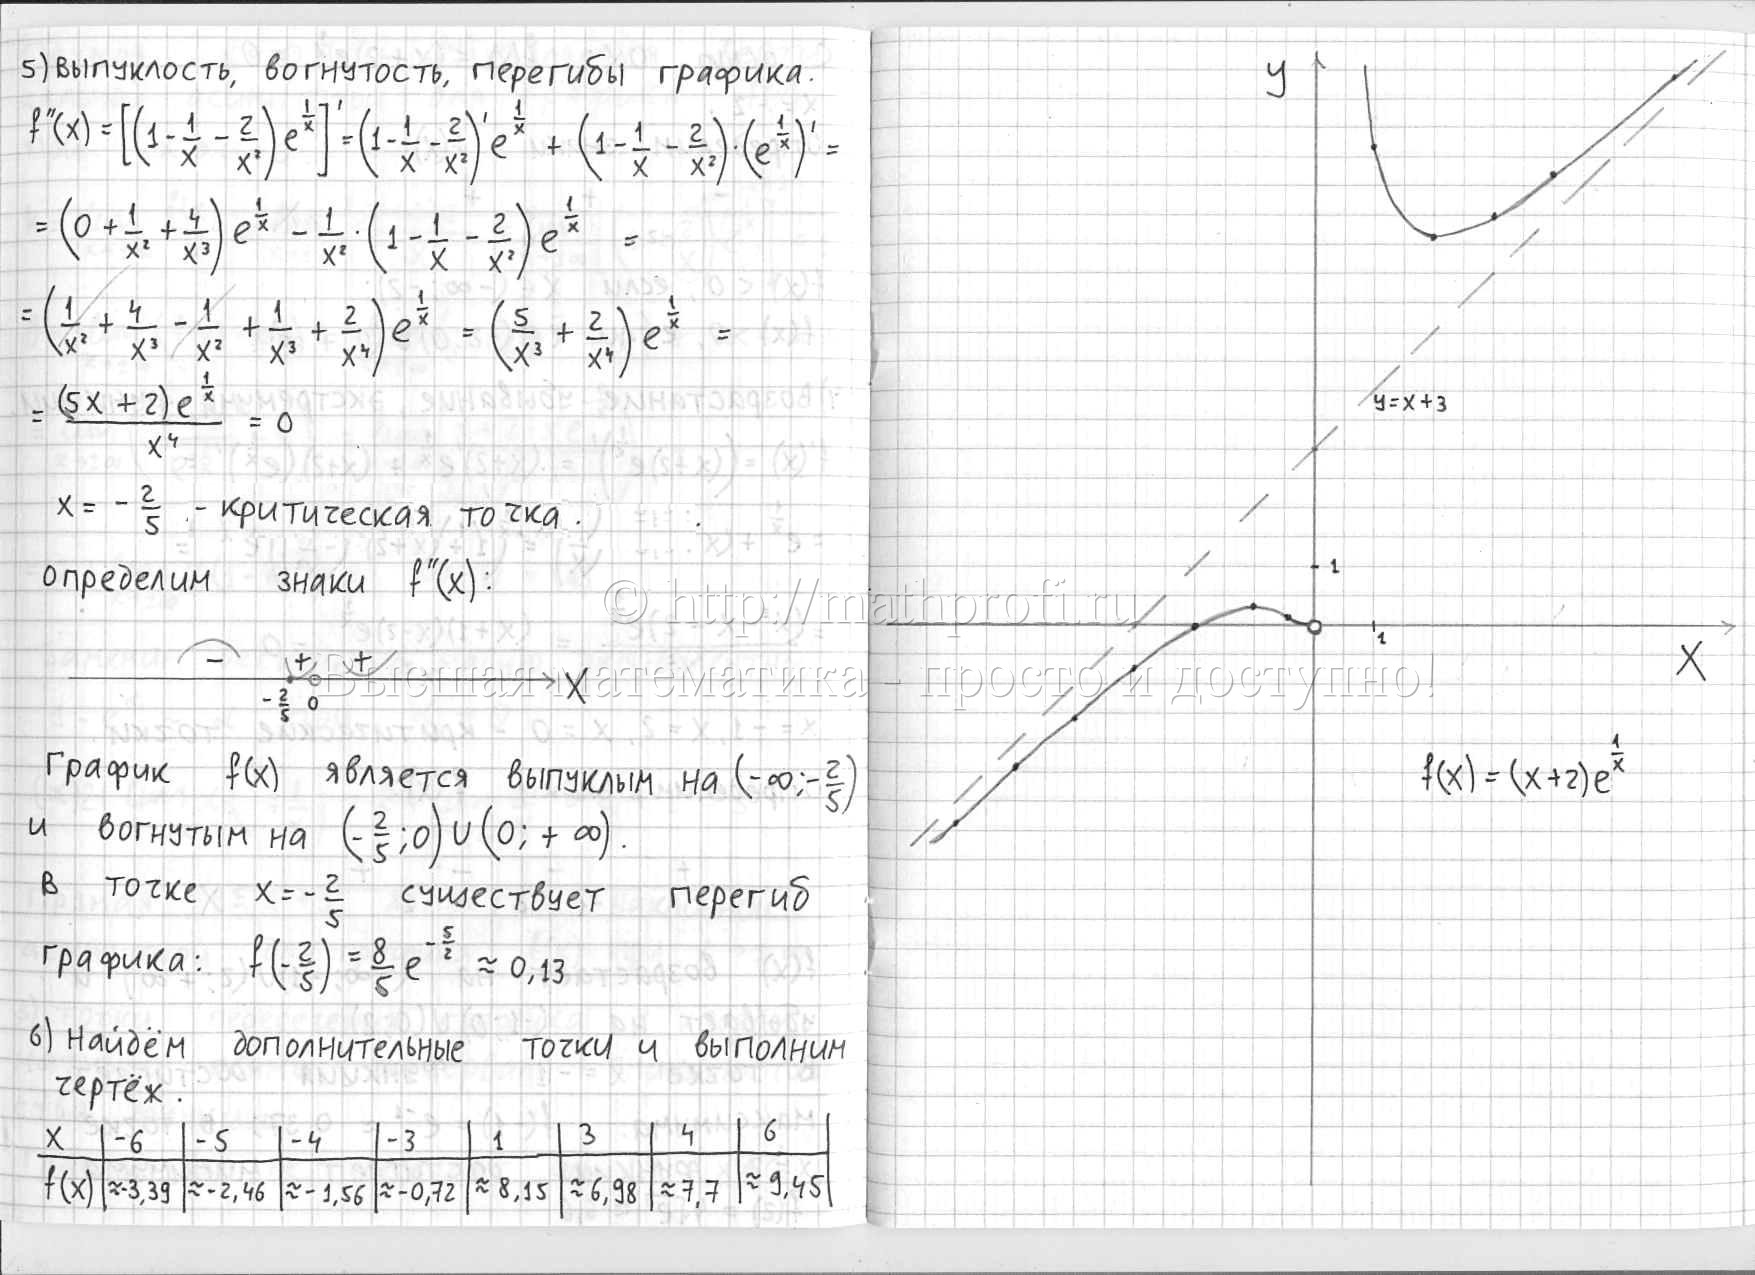 5) Выпуклость, вогнутость, перегибы графика.
f''(x) = [(1 - 1/x - 2/x²) e^(1/x)]' = (1 - 1/x - 2/x²)' e^(1/x) + (1 - 1/x - 2/x²) · (e^(1/x))' =
= (0 + 1/x² + 4/x³) e^(1/x) - 1/x² · (1 - 1/x - 2/x²) e^(1/x) =
= (1/x² + 4/x³ - 1/x² + 1/x³ + 2/x⁴) e^(1/x) = (5/x³ + 2/x⁴) e^(1/x) =
= (5x + 2) e^(1/x) / x⁴ = 0
x = -2/5 - критическая точка.
определим знаки f''(x):
- + +
-2/5 0 X
График f(x) является выпуклым на (-∞; -2/5)
и вогнутым на (-2/5; 0) ∪ (0; +∞).
В точке x = -2/5 существует перегиб
графика: f(-2/5) = 8/5 e^(-5/2) ≈ 0,13
6) Найдём дополнительные точки и выполним
чертёж.
x -6 -5 -4 -3 1 3 4 6
f(x) ≈-3,39 ≈-2,46 ≈-1,56 ≈-0,72 ≈8,15 ≈6,98 ≈7,7 ≈9,45
y
y = x + 3
1
1
X
f(x) = (x+2)e^(1/x)
© http://mathprofi.ru
Высшая математика - просто и доступно!